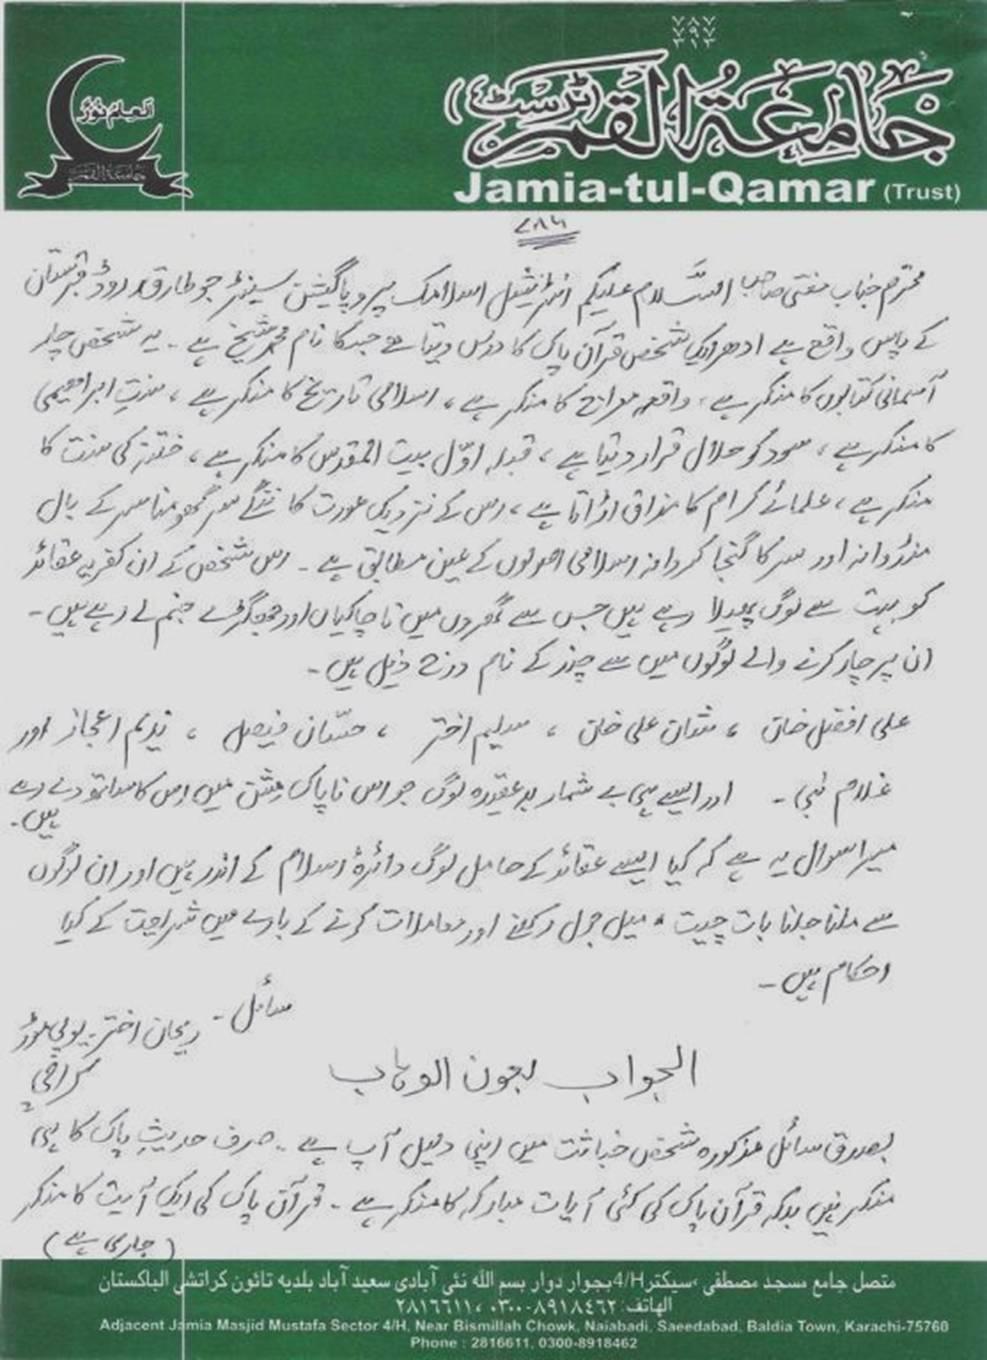 ۷۸۶
۹۲
العلم نورٌ
جامعۃ القمر
جامعۃ القمر (ٹرسٹ)
Jamia-tul-Qamar (Trust)
۷۸۶
محترم جناب مفتی صاحب السَّلام علیکم انٹرنیشنل اسلامک پروپاگیشن سینٹر جو طارق روڈ قبرستان
کے پاس واقع ہے ادھر ایک شخص قرآن پاک کا درس دیتا ہے جسکا نام محمد شیخ ہے۔ یہ شخص چار
آسمانی کتابوں کا منکر ہے، واقعہ معراج کا منکر ہے، اسلامی تاریخ کا منکر ہے، سنتِ ابراھیمی
کا منکر ہے، سود کو حلال قرار دیتا ہے، قبلہ اوّل بیت المقدس کا منکر ہے، ختنہ کی سنت کا
منکر ہے، علمائے کرام کا مذاق اڑاتا ہے، اس کے نزدیک عورت کا ننگے سر گھومنا سر کے بال
منڈوانہ اور سر کا گنجا کروانہ اسلامی اصولوں کے عین مطابق ہے۔ اس شخص کے ان کفریہ عقائد
کو بہت سے لوگ پھیلا رہے ہیں جس سے گھروں میں ناچاکیاں اور جھگڑے جنم لے رہے ہیں۔
ان پرچار کرنے والے لوگوں میں سے چند کے نام درج ذیل ہیں۔
علی افضل خان، علی خان، سلیم اختر، حسّان فیصل، ندیم اعجاز اور
غلام نبی۔ اور ایسے ہی بے شمار بدعقیدہ لوگ جو اس ناپاک مِشن میں اس کا ساتھ دے رہے
ہیں۔
میرا سوال یہ ہے کہ کیا ایسے عقائد کے حامل لوگ دائرۂ اسلام کے اندر ہیں اور ان لوگوں
سے ملنا جلنا بات چیت، میل جول رکھنے اور معاملات کرنے کے بارے میں شریعت کے کیا
احکام ہیں۔
سائل۔ ریحان اختر۔ یوپی موڑ
کراچی
الجواب بعون الوھاب
بصدق سائل مذکورہ شخص خباثت میں اپنی دلیل آپ ہے۔ صرف حدیثِ پاک کا ہی
منکر نہیں بلکہ قرآن پاک کی کئی آیات مبارکہ کا منکر ہے۔ قرآن پاک کی ایک آیت کا منکر
(جاری ہے)
متصل جامع مسجد مصطفی، سیکٹر 4/H بجوار دوار بسم الله نئی آبادی سعید آباد بلدیه تائون کراتشی الباکستان
الهاتف: ۲۸۱۶۶۱۱، ۰۳۰۰-۸۹۱۸٤٦۲
Adjacent Jamia Masjid Mustafa Sector 4/H, Near Bismillah Chowk, Naiabadi, Saeedabad, Baldia Town, Karachi-75760
Phone : 2816611, 0300-8918462